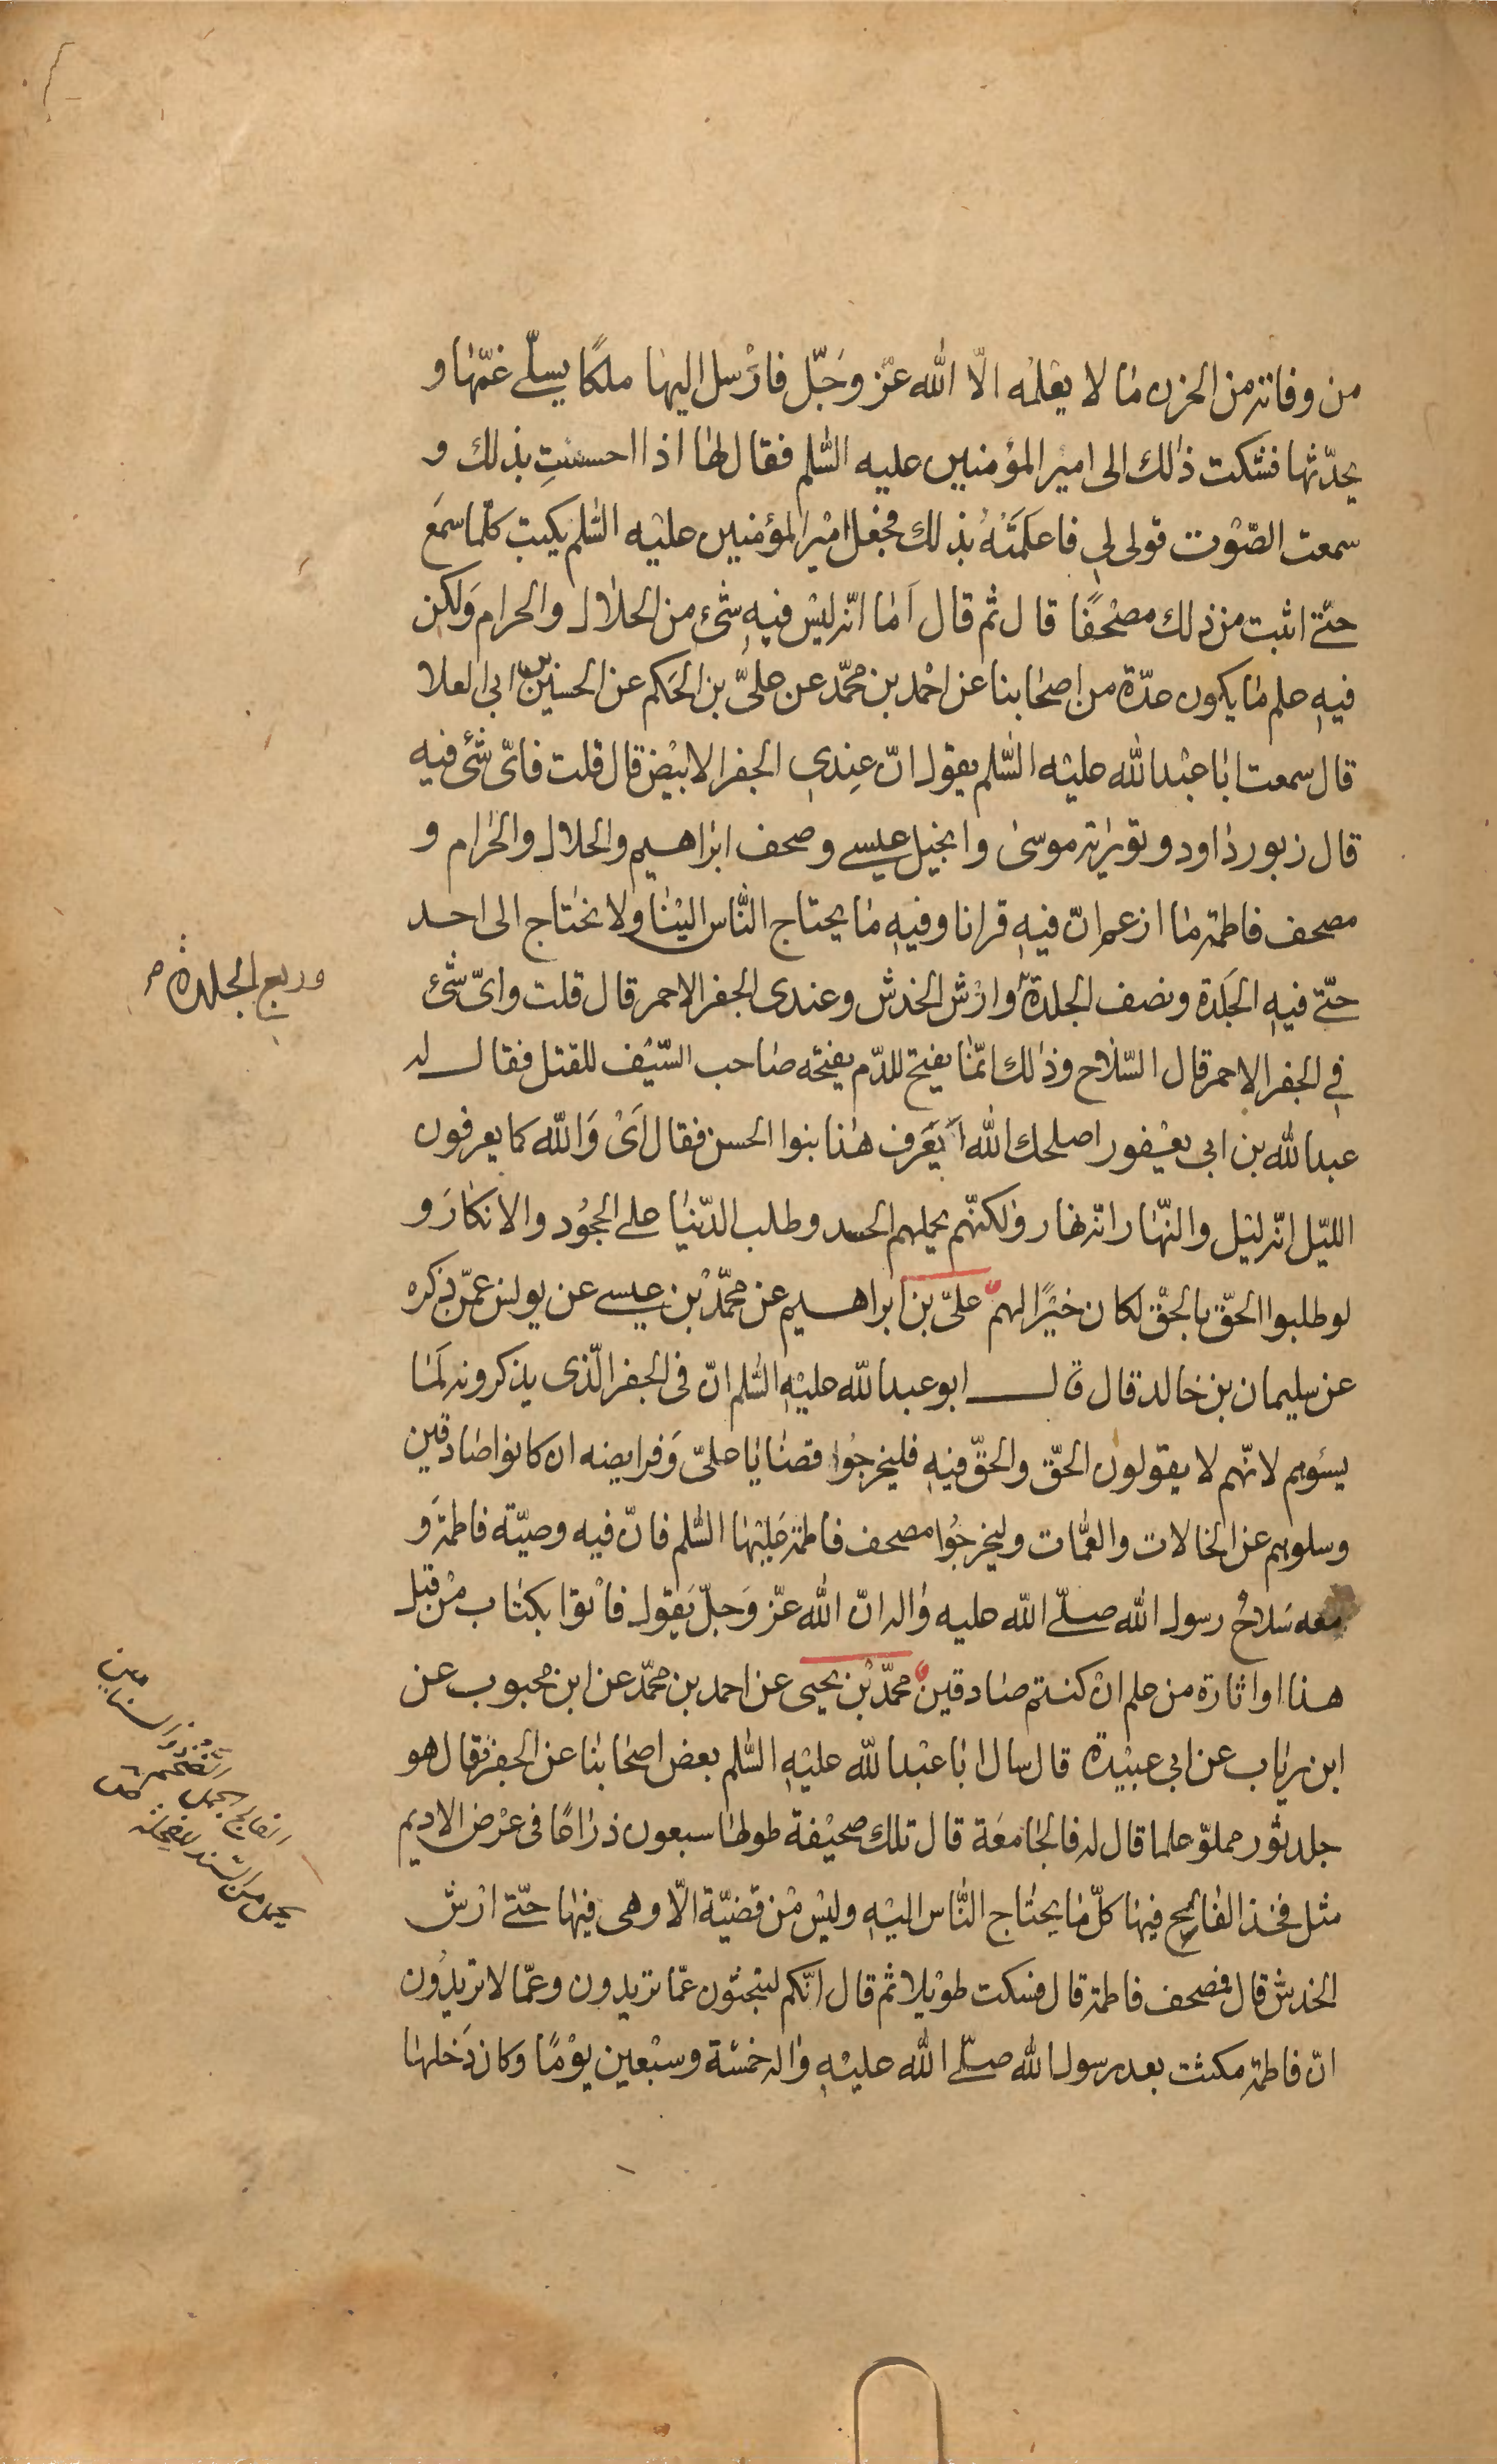 من وفاته من الحزن ما لا يعلمه الّا الله عزّ وجَلّ فارْسل اليها ملكًا يسلّي غمّها و
يحدّثها فشكت ذلك الى امير المؤمنين عليه السّلم فقال لها اذا احسستِ بذلك و
سمعت الصّوْت قولى لي فاعلَمَتْهُ بذلك فجعل امير المؤمنين عليْه السّلم يكتب كلّما سمَع
حتّى اثبت من ذلك مصْحَفًا قال ثم قال اَما انّه ليْس فيهِ شىْء من الحلال والحرام وَلكن
فيهِ علم ما يكون عدّة من اصحابنا عن احْمد بن محمّد عن علىّ بن الحَكم عن الحسين بن ابى العلا
قال سمعت ابا عبْد الله عليْه السّلم يقول انّ عِندي الجفر الابيْض قال قلت فاىّ شىْ فيه
قال زبور داود وتورية موسى وانجيل عيسى وصحف ابراهيم والحلال والحرام و
مصحف فاطمة ما ازعم انّ فيهِ قرانا وفيهِ ما يحتاج النّاس اليْنا ولا نحتاج الى احد
حتّى فيهِ الجَلدة ونصف الجلدة وارْش الخدش وعندى الجفر الاحمر قال قلت واىّ شىْ
في الجفر الاحمر قال السّلاح وذلك انّما يفتح للدّم يفتحه صاحب السّيْف للقتل فقال له
عبد الله بن ابى يعْفور اصلحك الله اَيَعَرف هذا بنوا الحسن فقال اَىْ وَالله كما يعرفون
الليْل انّه ليْل والنّهار انّه نهار ولكنّهم يحملهم الحسد وطلب الدّنيا على الجحُود والانكارَ و
لو طلبوا الحقّ بالحقّ لكان خيْرًا لهم علىّ بن ابراهيم عن محمّد بْن عيسى عن يونس عمّن ذكره
عن سليمان بن خالد قال قال ابو عبد الله عليْهِ السّلم انّ فى الجفر الّذى يذكرونه لَما
يسؤهم لانّهم لا يقولون الحقّ والحقّ فيهِ فليخرجُوا قضايا علىّ وَفرايضه ان كانوا صادقين
وسلوهم عن الخالات والعمّات وليخرجُوا مصحف فاطمة عَليْها السّلم فانّ فيه وصيّة فاطمة وَ
معه سَلاحُ رسول الله صلّى الله عليه واله انّ الله عزّ وَجلّ يَقول فاْتوا بكتاب مْن قبل
هذا او اثارة من علم انْ كنتم صادقين محمّد بْن يحيى عن احمد بن محمّد عن ابن محبوب عن
ابن رياب عن ابي عبيْدة قال سال ابا عبْد الله عليْهِ السّلم بعض اصحابنا عن الجفر فقال هو
جلد ثور مملوّ علما قال له فالجامعَة قال تلك صحيْفة طولها سبعون ذراعًا فى عرْض الاديم
مثل فخذ الفالج فيها كلّ ما يحتاج النّاس اليْهِ وليْس مْن قضيّة الّا وهى فيها حتّى ارْش
الخدش قال فمصحف فاطمة قال فسكت طوْيلا ثم قال انّكم لتبحثون عمّا تريدون وعمّا لا تريدُون
انّ فاطمة مكثت بعد رسول الله صلّى الله عليْهِ واله خمسْة وسبْعين يوْمًا وكان دَخلها
وربع الجلدة
الفالج الجمل الضخم ذو السنامين
يحمل من السّند للفحلة